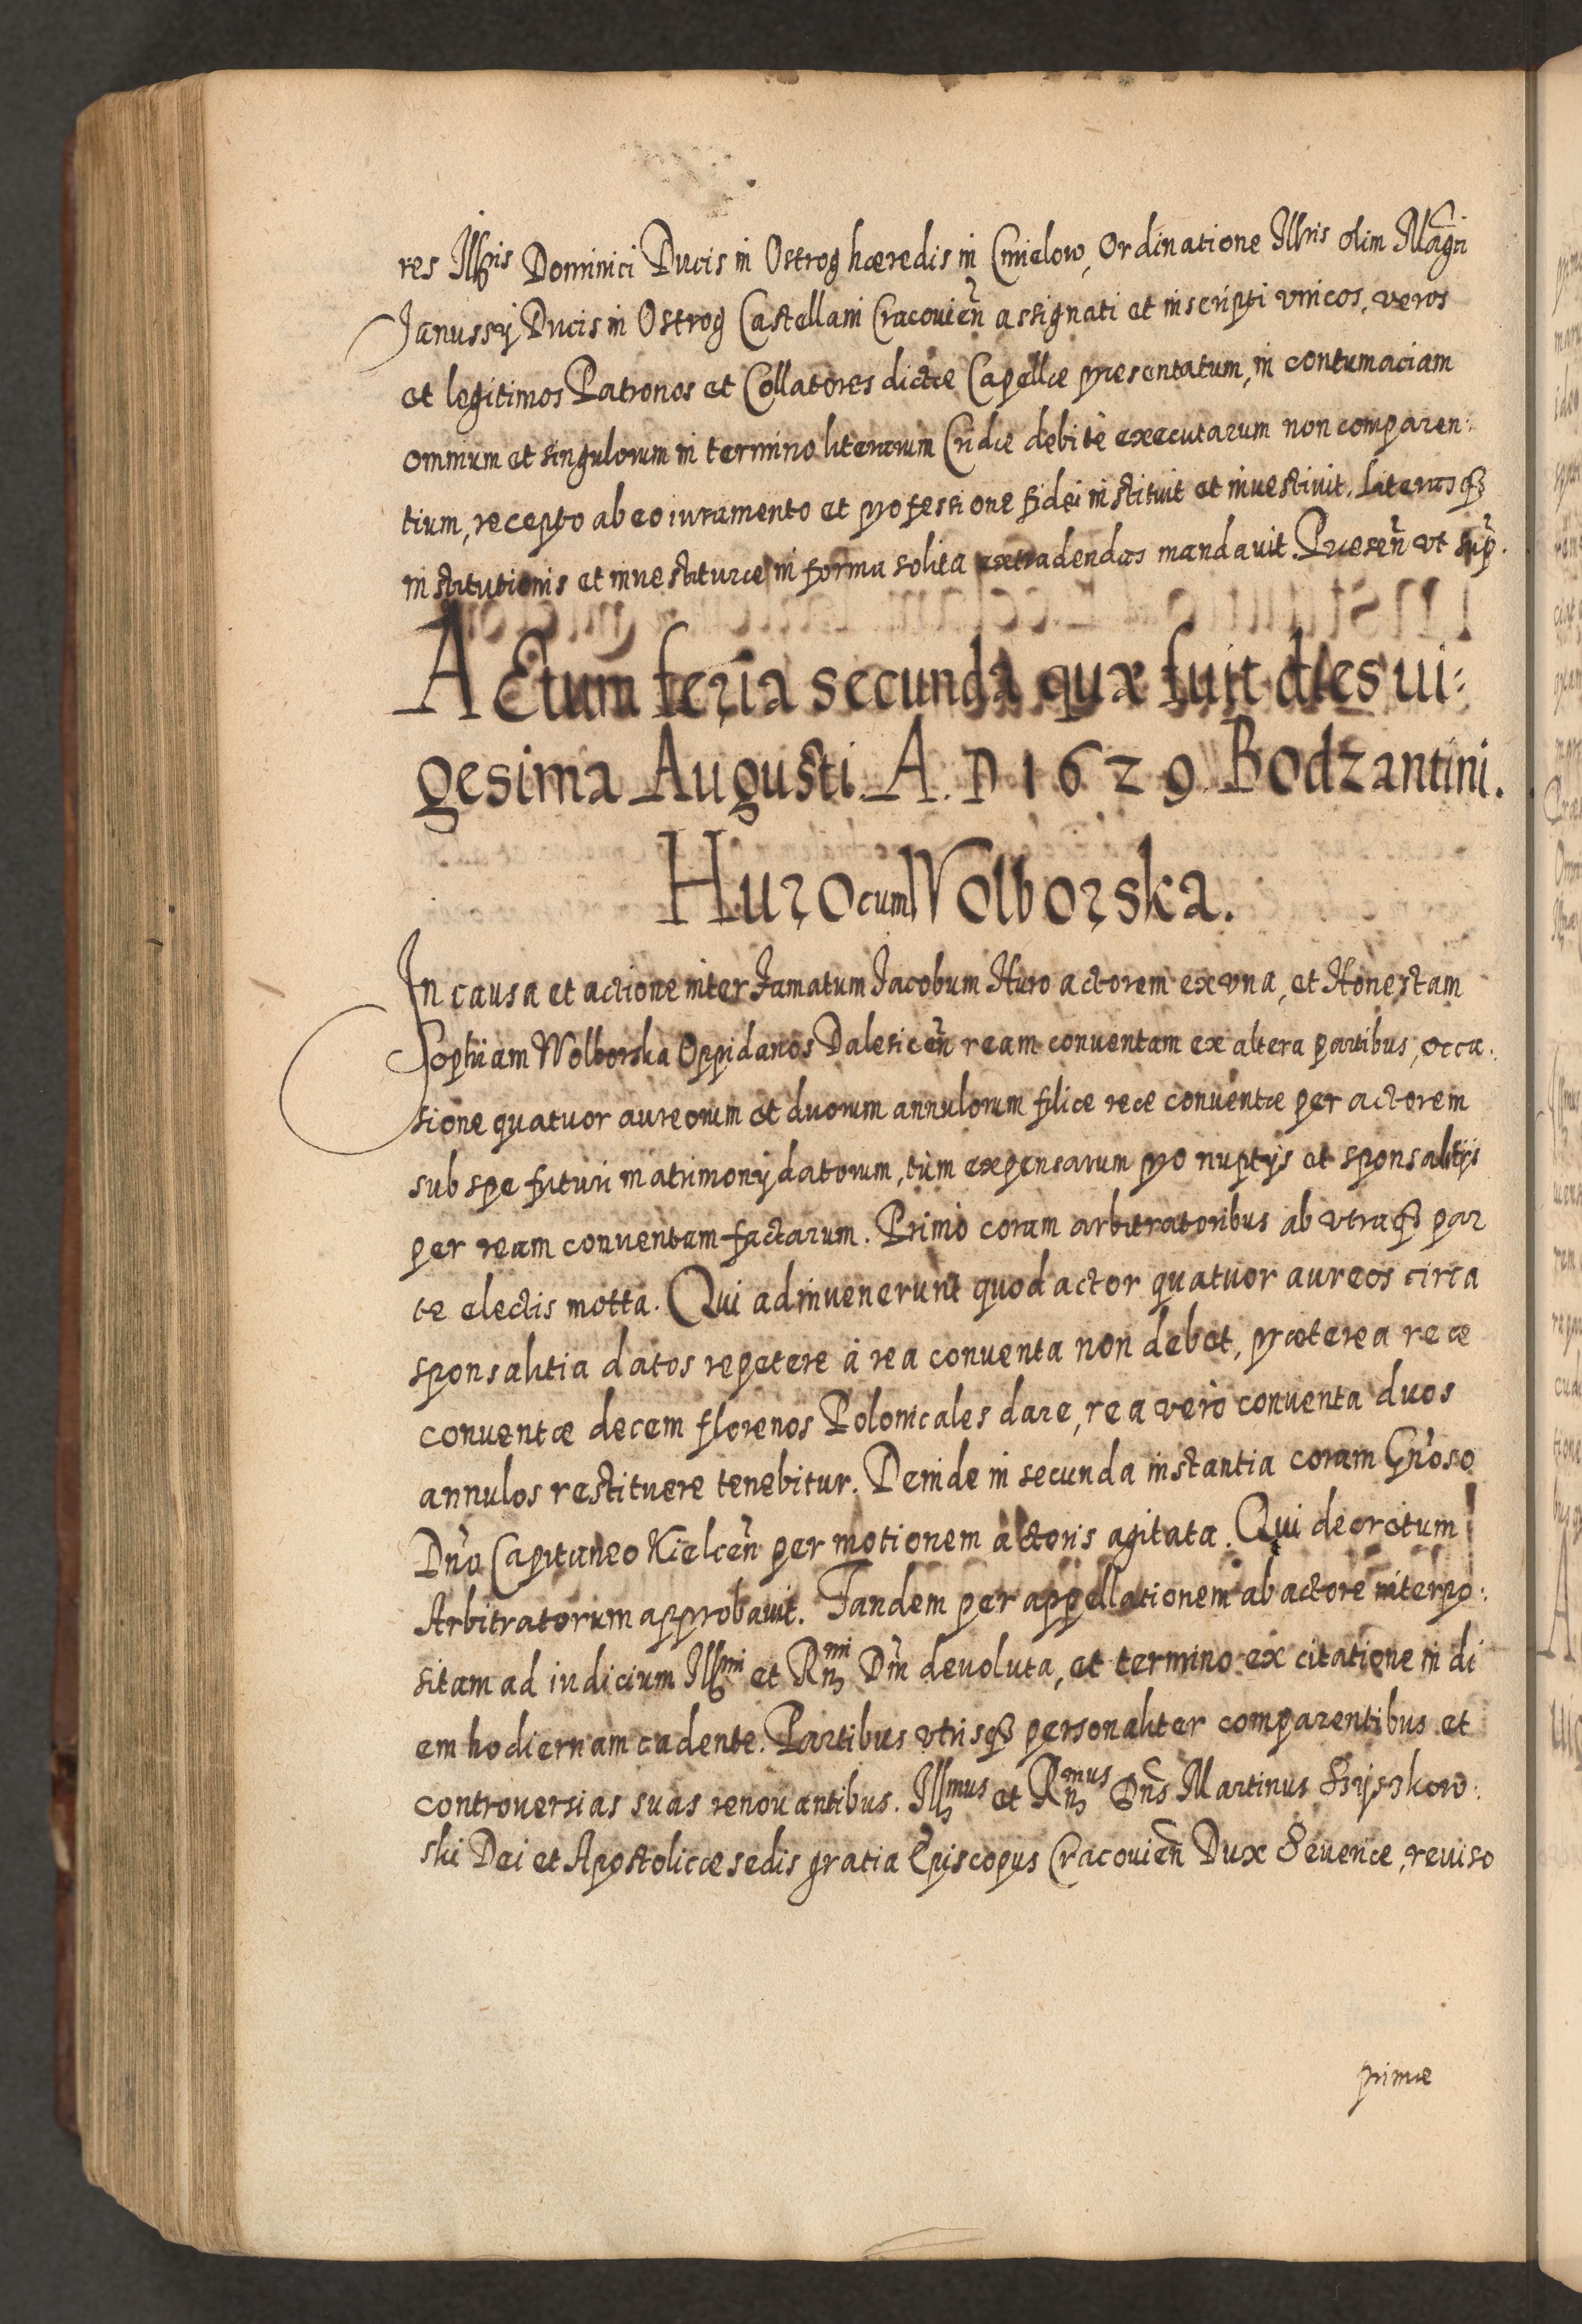 res Illris Dominici Ducis in Ostrog hæredis in Cmielow, Ordinatione Illris olim Magci
Janussij Ducis in Ostrog Castellani Cracouien̄ assignati et inscripti vnicos, veros
et legitimos Patronos et Collatores dictæ Capellæ præsentatum, in contumaciam
omnium et singulorum in termino literarum Cridæ debitè executarum non comparen:
tium, recepto ab eo iuramento et professione fidei instituit et inuestiuit. Literasq3
institutionis et inuestituræ in forma solita extradendas mandauit. Præsen̄ vt sup̄.
Actum feria secunda quæ fuit dies ui:
gesima Augusti. A. D 1629. Bodzantini.
Huro cum Wolborska.
In causa et actione inter Famatum Jacobum Huro actorem ex vna, et Honestam
Sophiam Wolborska Oppidanos Dalesicen̄ ream conuentam ex altera partibus, occa.
sione quatuor aureorum et duorum annulorum filiæ reæ conuentæ per actorem
sub spe futuri matrimonij datorum, tùm expensarum pro nuptijs et sponsalitijs
per ream conuentam factarum. Primò coram arbitratoribus ab vtraq3 par
te electis motta. Qui adinuenerunt quod actor quatuor aureos circa
sponsalitia datos repetere à rea conuenta non debet, præterea reæ
conuentæ decem florenos Polonicales dare, rea verò conuenta duos
annulos restituere tenebitur. Deinde in secunda instantia coram Gn̄oso
Dn̄o Capitaneo Kielcen̄ per motionem actoris agitata. Qui decretum
Arbitratorum approbauit. Tandem per appellationem ab actore interpo:
sitam ad iudicium Illmi et Rmi Dn̄i deuoluta, et termino ex citatione in di
em hodiernam cadente. Partibus vtrisq3 personaliter comparentibus et
controuersias suas renouantibus. Illmus et Rmus Dn̄s Martinus Szÿszkow:
ski Dei et Apostolicæ sedis gratia Episcopus Cracouien̄ Dux Seueriæ, reuiso
primæ